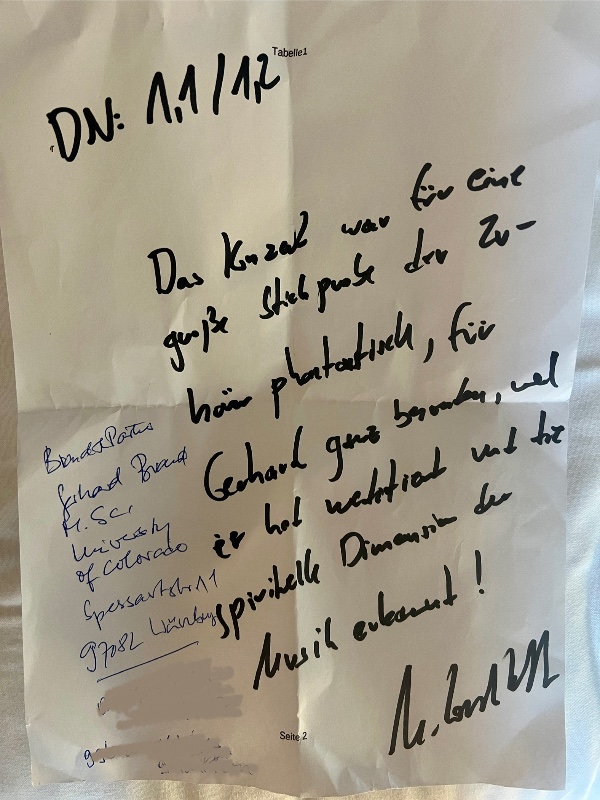 Tabelle1
DN: 1,1/1,2
Das Konzert war für eine
große Stichprobe der Zu-
hörer phantastisch, für
Gerhard ganz besonders, weil
er hat und die
spirituelle Dimension der
Musik erkannt!
Brand&Partner
Gerhard Brand
M.Sc.
University
of Colorado
Spessartstr. 11
97082 Würzburg
Seite 2